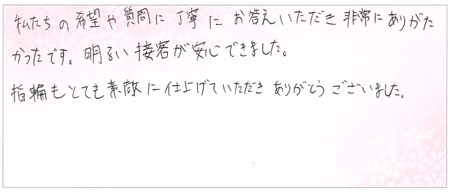 私たちの希望や質問に丁寧にお答えいただき非常にありがた
かったです。明るい接客が安心できました。
指輪もとても素敵に仕上げていただきありがとうございました。